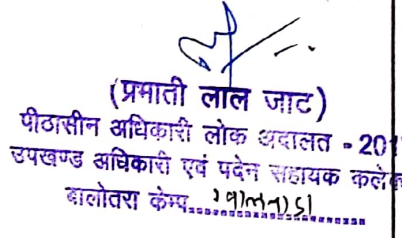 (प्रमाती लाल जाट)
पीठासीन अधिकारी लोक अदालत - 201
उपखण्ड अधिकारी एवं पदेन सहायक कले
बालोतरा केम्प